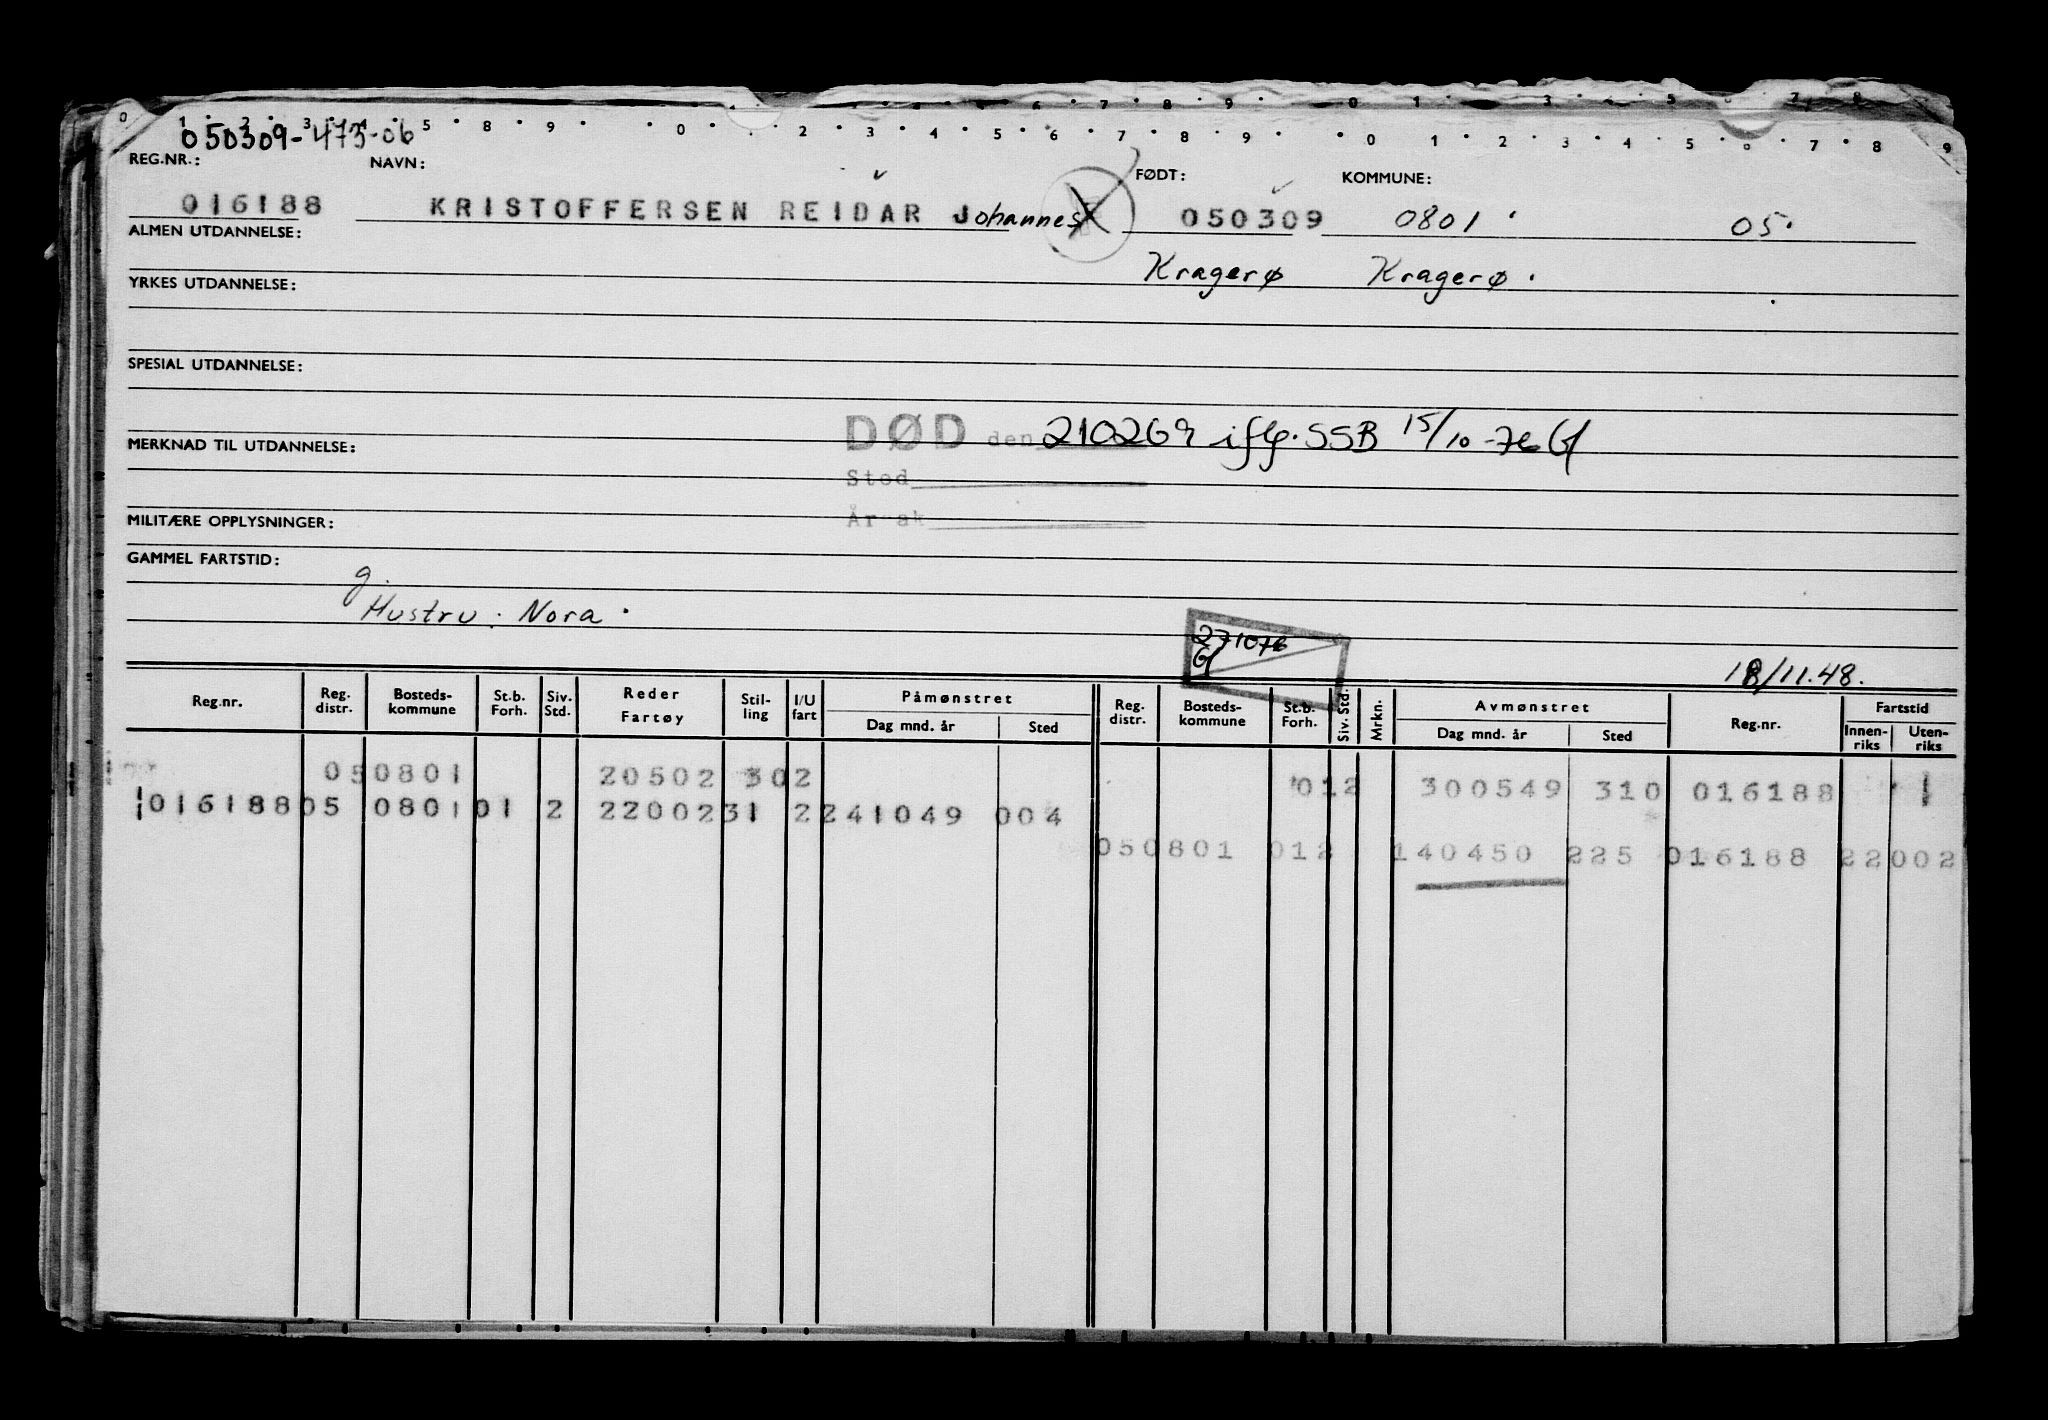 050309-473-06
REG.NR.: NAVN: FØDT: KOMMUNE:
016188 KRISTOFFERSEN REIDAR Johannes 050309 0801 05
ALMEN UTDANNELSE:
Kragerø Kragerø
YRKES UTDANNELSE:
SPESIAL UTDANNELSE:
DØD den 210269 iflg. SSB 15/10-76
MERKNAD TIL UTDANNELSE:
Sted
År-ak
MILITÆRE OPPLYSNINGER:
GAMMEL FARTSTID:
g.
Hustru: Nora
271076
18/11.48.
Reg.nr. Reg. distr. Bosteds-kommune St.b. Forh. Siv. Std. Reder Fartøy Stil-ling I/U fart Påmønstret Dag mnd. år Sted Reg. distr. Bosteds-kommune St.b. Forh. Siv. Std. Mrkn. Avmønstret Dag mnd. år Sted Reg.nr. Fartstid Innen-riks Uten-riks
050801 20502 302 012 300549 310 016188
01618805 080101 2 2200231 2241049 004
050801 012 140450 225 016188 22002